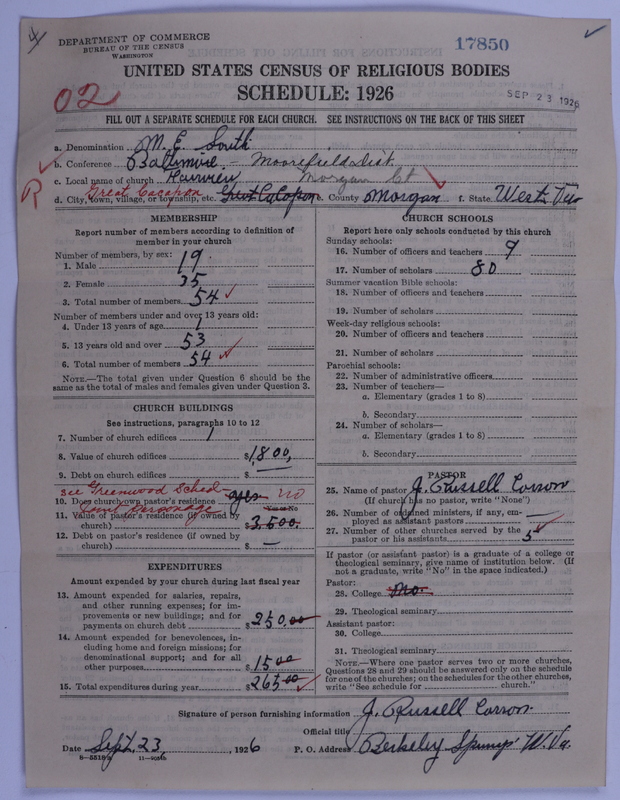 4
DEPARTMENT OF COMMERCE
BUREAU OF THE CENSUS
WASHINGTON
17850
UNITED STATES CENSUS OF RELIGIOUS BODIES
SCHEDULE: 1926
SEP 23 1926
02
FILL OUT A SEPARATE SCHEDULE FOR EACH CHURCH. SEE INSTRUCTIONS ON THE BACK OF THIS SHEET
a. Denomination M. E. South
b. Conference Baltimore - Moorefield Dist.
c. Local name of church Fairview Morgan Ct
R
Great Cacapon
d. City, town, village, or township, etc. Great Cacapon e. County Morgan f. State West Va
MEMBERSHIP
Report number of members according to definition of member in your church
Number of members, by sex:
1. Male 19
2. Female 35
3. Total number of members 54
Number of members under and over 13 years old:
4. Under 13 years of age 1
5. 13 years old and over 53
6. Total number of members 54
NOTE.—The total given under Question 6 should be the same as the total of males and females given under Question 3.
CHURCH BUILDINGS
See instructions, paragraphs 10 to 12
7. Number of church edifices 1
8. Value of church edifices $1,800,
9. Debt on church edifices $ —
see Greenwood Sched
10. Does church own pastor's residence yes no
Yes or No
Joint parsonage
11. Value of pastor's residence (if owned by
church) $3,500.
12. Debt on pastor's residence (if owned by
church) $ —
EXPENDITURES
Amount expended by your church during last fiscal year
13. Amount expended for salaries, repairs,
and other running expenses; for im-
provements or new buildings; and for
payments on church debt $250.00
14. Amount expended for benevolences, in-
cluding home and foreign missions; for
denominational support; and for all
other purposes $15 00
15. Total expenditures during year $265 00
CHURCH SCHOOLS
Report here only schools conducted by this church
Sunday schools:
16. Number of officers and teachers 9
17. Number of scholars 80
Summer vacation Bible schools:
18. Number of officers and teachers
19. Number of scholars
Week-day religious schools:
20. Number of officers and teachers
21. Number of scholars
Parochial schools:
22. Number of administrative officers
23. Number of teachers—
a. Elementary (grades 1 to 8)
b. Secondary
24. Number of scholars—
a. Elementary (grades 1 to 8)
b. Secondary
PASTOR
25. Name of pastor J. Russell Corron
(If church has no pastor, write "None")
26. Number of ordained ministers, if any, em-
ployed as assistant pastors —
27. Number of other churches served by the
pastor or his assistants 5
If pastor (or assistant pastor) is a graduate of a college or theological seminary, give name of institution below. (If not a graduate, write "No" in the space indicated.)
Pastor:
28. College No.
29. Theological seminary
Assistant pastor:
30. College
31. Theological seminary
NOTE.—Where one pastor serves two or more churches, Questions 28 and 29 should be answered only on the schedule for one of the churches; on the schedules for the other churches, write "See schedule for church."
Signature of person furnishing information J. Russell Corron.
Official title
Date Sept. 23, 1926 P. O. Address Berkeley Springs W. Va.